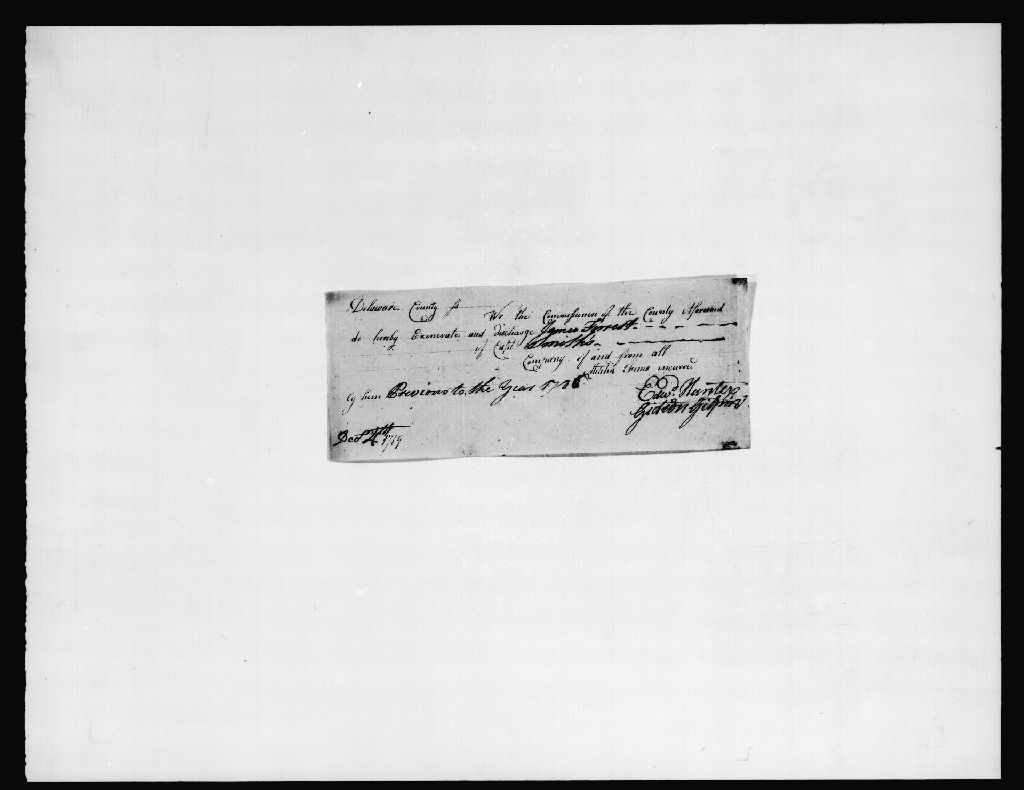 Delaware County ss We the Commissioners of the County Aforesaid
do hereby Exonerate and discharge James Forrest
of Capt Smiths
Company of and from all
Militia Fines incurred
by him Previous to the Year 1788
Edwd. Hunter
Gideon Gilpin
Decr 4th 1789